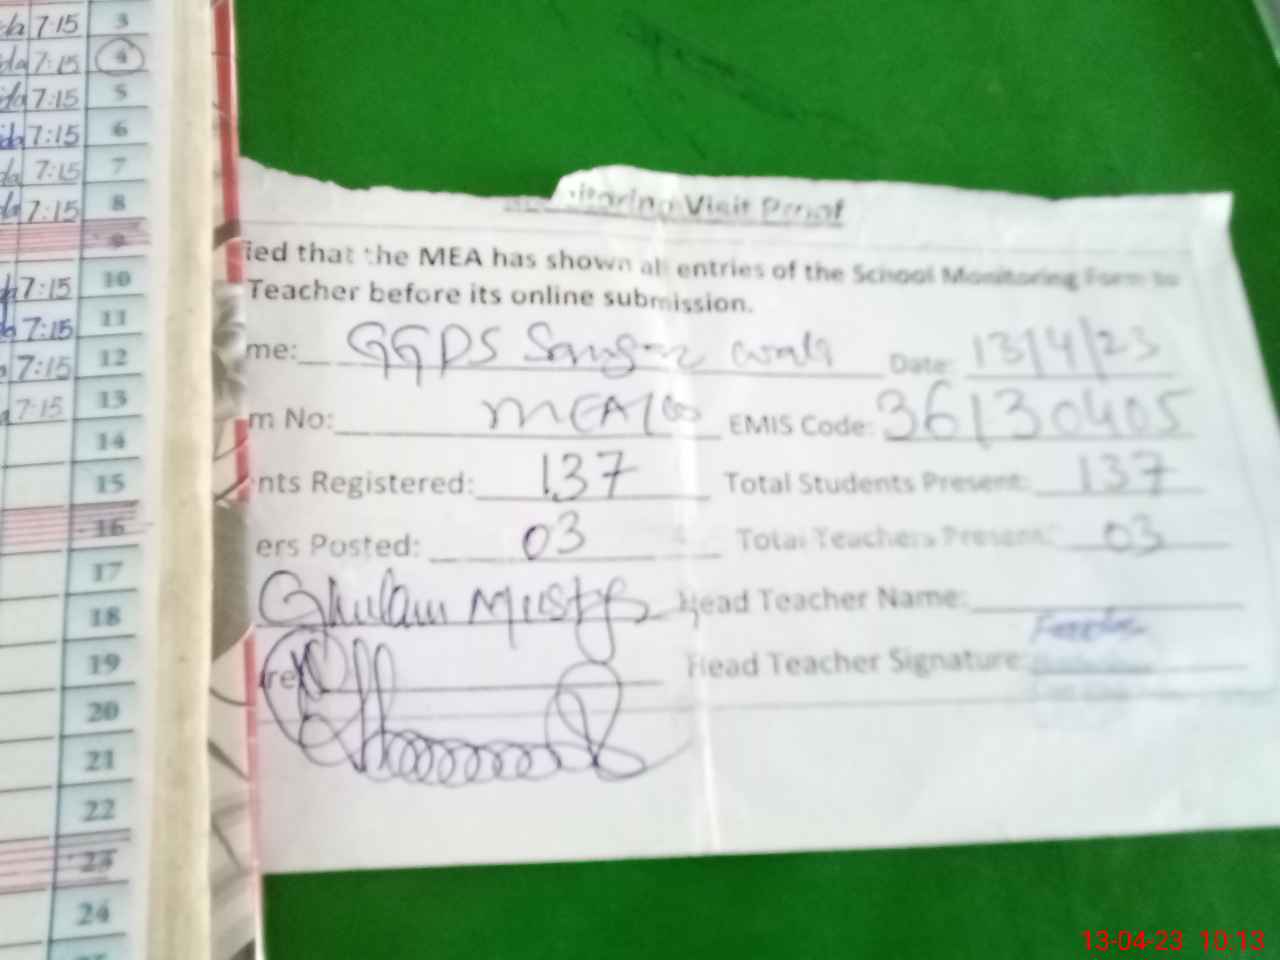 7:15 3
7:15 4
7:15 5
7:15 6
7:15 7
7:15 8
9
7:15 10
7:15 11
7:15 12
7:15 13
14
15
16
17
18
19
20
21
22
23
24
itoring Visit Proof
ied that the MEA has shown all entries of the School Monitoring Form to
Teacher before its online submission.
me: GGPS Date: 13/4/23
m No: EMIS Code: 36130405
nts Registered: 137 Total Students Present: 137
ers Posted: 03 Total Teachers Present: 03
Ghulam Mustafa Head Teacher Name:
re Head Teacher Signature:
13-04-23 10:13